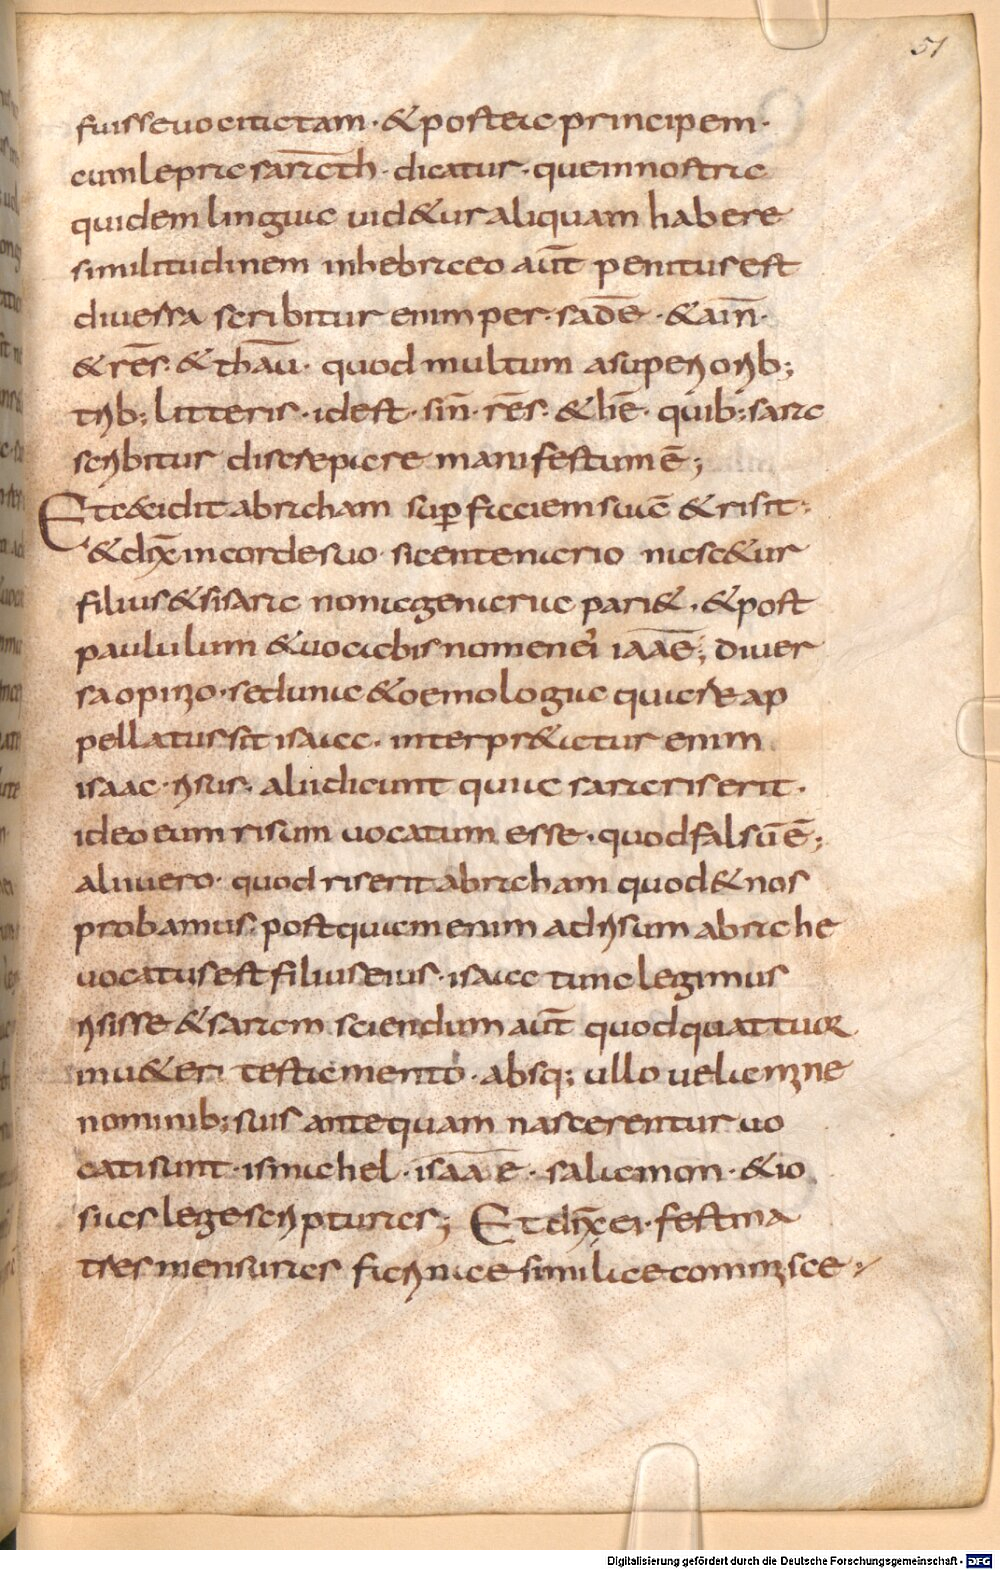 51
fuisse uocitatam · & postea principem ·
cum lepra sarāth · dicatur · quem nostra
quidem lingua uid&ur aliquam habere
similitudinem in hebraeo aūt penitus est
diuersa scribitur enim per · sadē · & aīn ·
& rēs · & thāu · quod multum a superiorib;
trib; litteris · id est · sīn · rēs · & hē · quib; sara
scribitur discrepare manifestum ē;
Et cecidit abraham sup faciem suā & risit ·
& dix̄ in corde suo · si centenario nasc&ur
filius & si sara nonagenaria pari& · & post
paululum & uocabis nomen ei isāāc; diuer
sa opinio · sed una & oemologia quare ap
pellatus sit isaac · interpr&atur enim
isaac · risus · alii dicunt quia sara riserit ·
ideo eum risum uocatum esse · quod falsū ē;
alii uero · quod riserit abraham quod & nos
probamus · postquam enim ad risum abrahe
uocatus est filius eius · isaac tunc legimus
risisse & saram sciendum aūt quod quattuor
in u&eri testamento · absq; ullo uelamine
nominib; suis antequam nascerentur uo
cati sunt · ismahel · isāāc · salamon · & io
sias lege scripturas; Et dix̄ ei · festina
tres mensuras farinae similae commisce ·
Digitalisierung gefördert durch die Deutsche Forschungsgemeinschaft - DFG